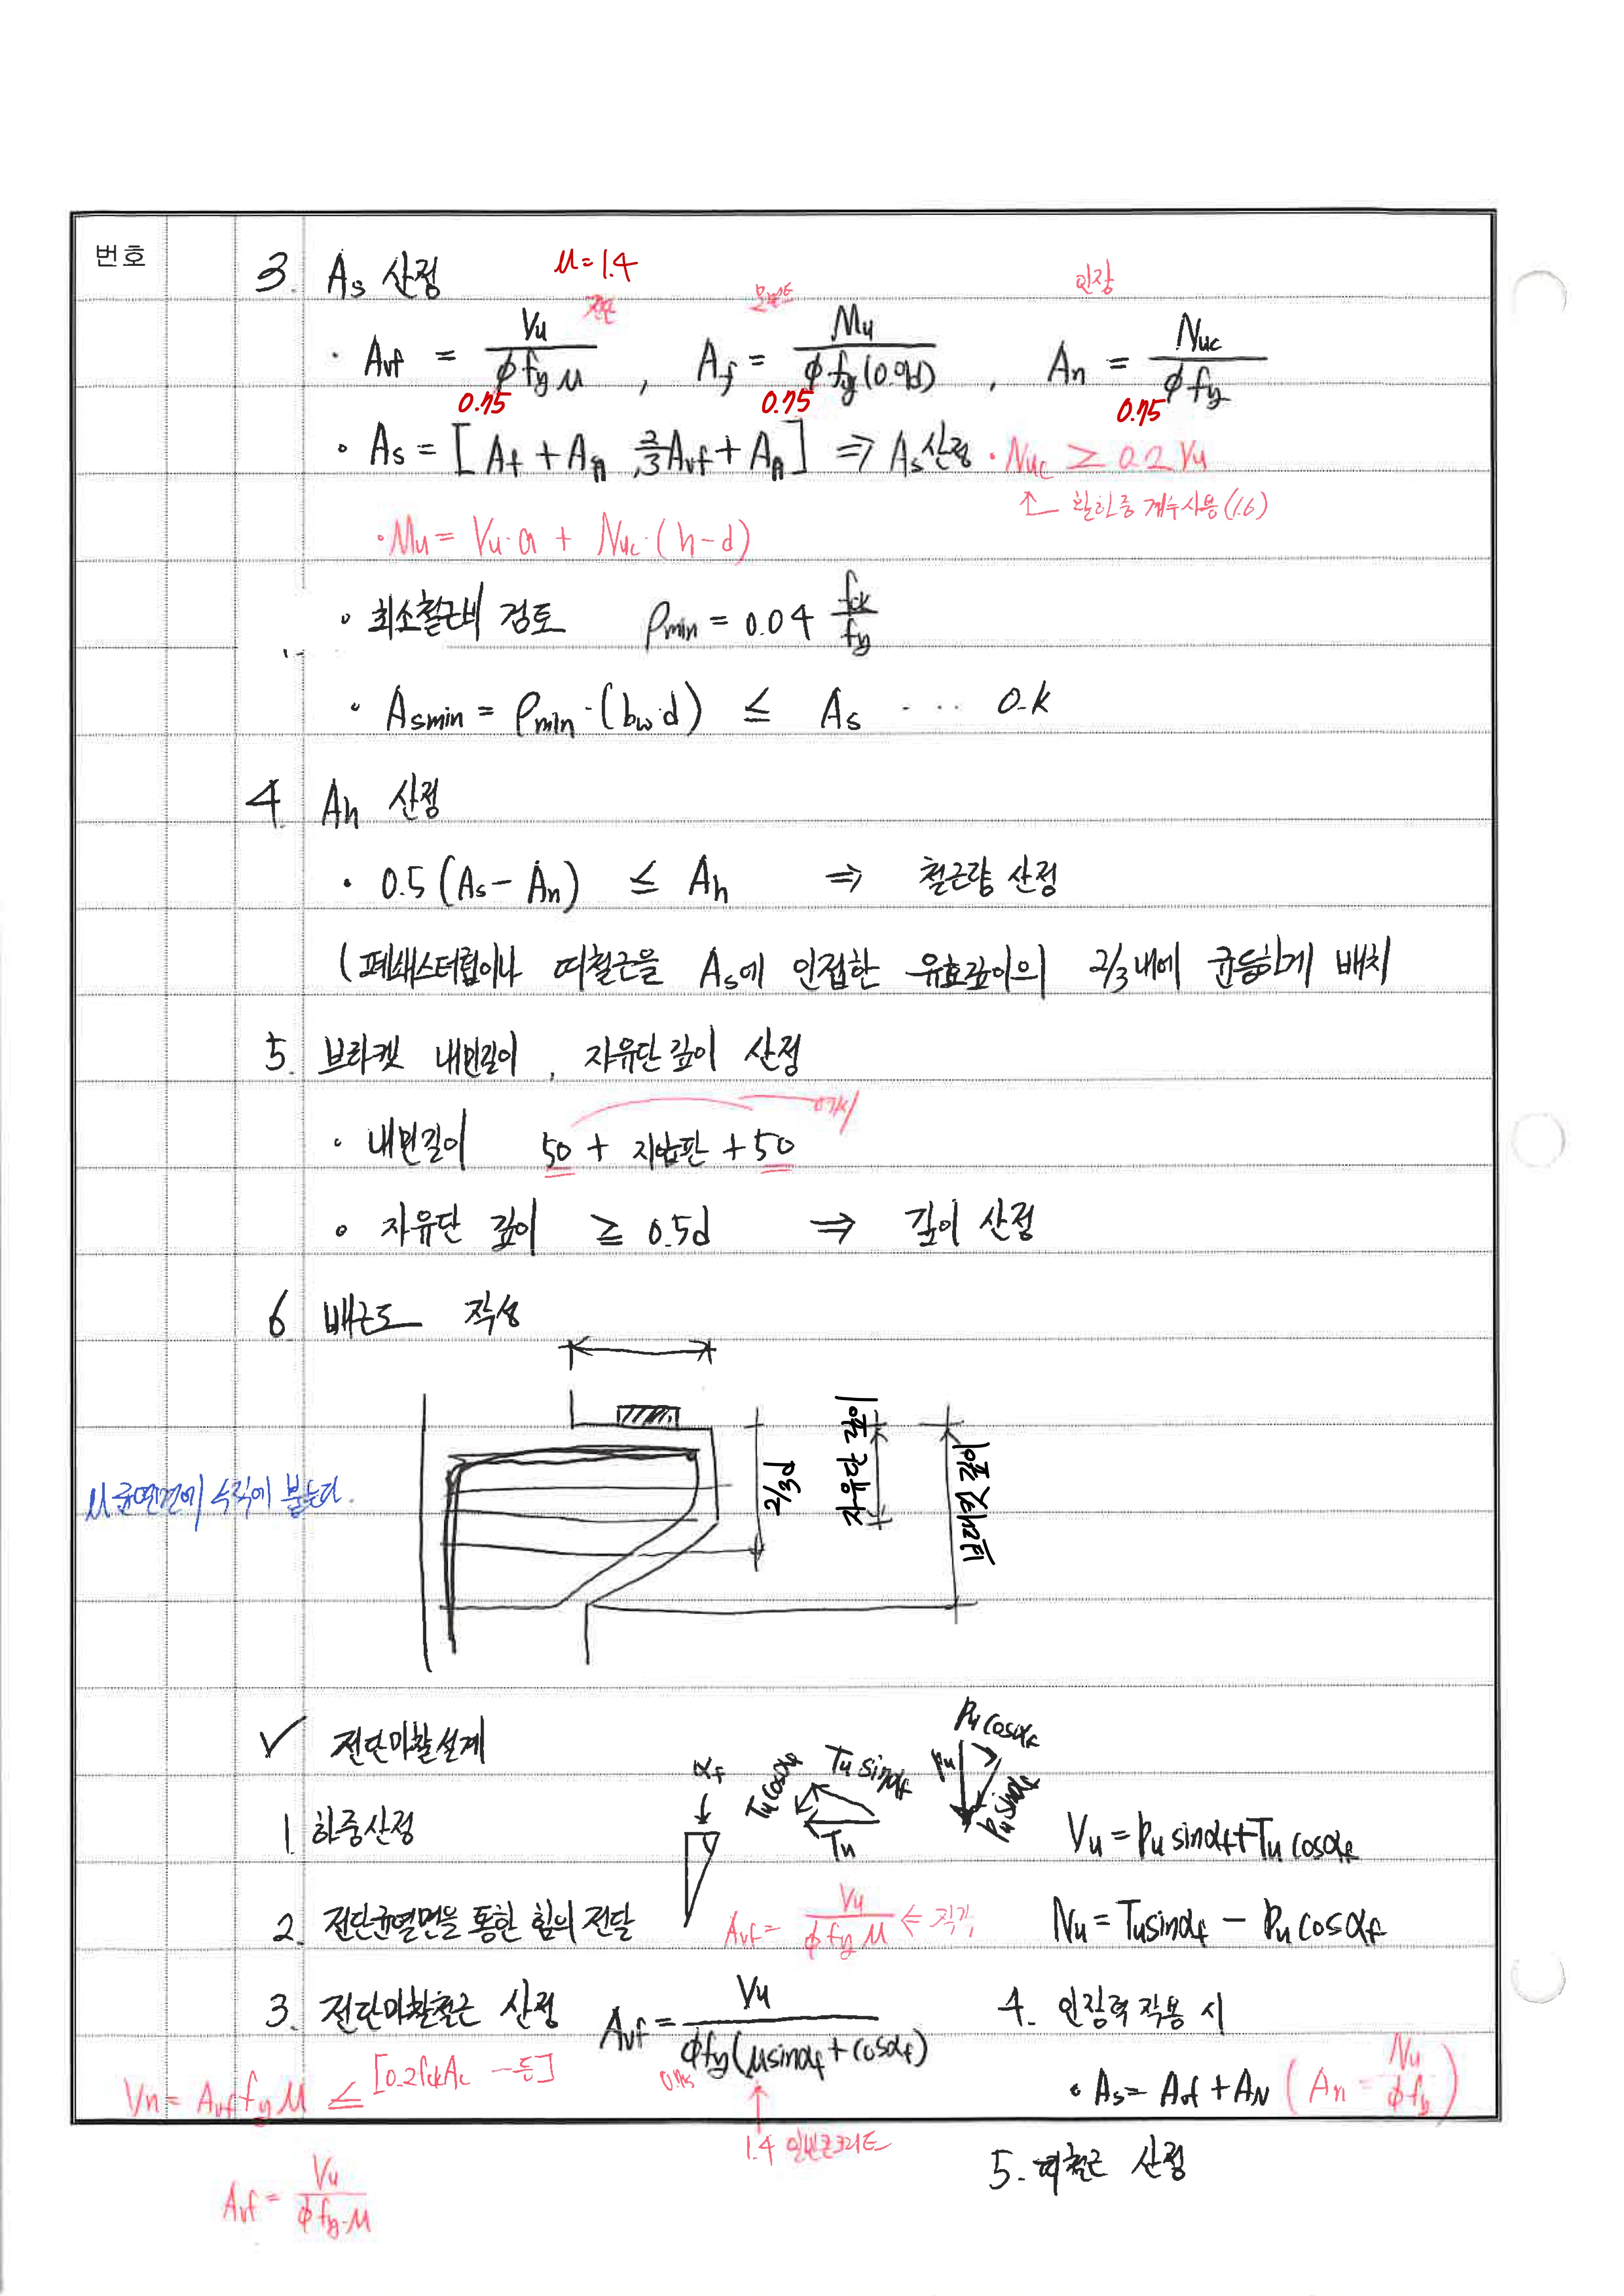 번호
3. As 산정 μ=1.4
전단 모멘트 인장
· Avf = Vu / φ fy μ , Af = Mu / φ fy (0.9d) , An = Nuc / φ fy
0.75 0.75 0.75
· As = [ Af + An, 2/3 Avf + An ] ⇒ As 산정 · Nuc ≥ 0.2 Vu
↑ 활하중 계수사용 (1.6)
· Mu = Vu·a + Nuc·(h-d)
· 최소철근비 검토 ρmin = 0.04 fck / fy
· Asmin = ρmin·(bw·d) ≤ As ··· O.K
4. Ah 산정
· 0.5 (As - An) ≤ Ah ⇒ 철근량 산정
(폐쇄스터럽이나 띠철근을 As에 인접한 유효깊이의 2/3내에 균등하게 배치
5. 브라켓 내민길이, 자유단 깊이 산정
· 내민길이 50 + 지압판 + 50
· 자유단 깊이 ≥ 0.5d ⇒ 깊이 산정
6 배근도 작성
2/3d
자유단 깊이
μ 균열면에 수직에 붙는다.
✓ 전단마찰설계
αf Tu cosαf Tu sinαf Tu Pu Pu cosαf Pu sinαf
1. 하중산정 Vu = Pu sinαf + Tu cosαf
2. 전단균열면을 통한 힘의 전달 Avf = Vu / φ fy μ ⇐ 직각 Nu = Tu sinαf - Pu cosαf
3. 전단마찰철근 산정 Avf = Vu / φ fy (μ sinαf + cosαf) 4. 인장력 작용 시
0.75
Vn = Avf fy μ ≤ [0.2fck Ac ㅡ등] · As = Avf + AN ( An = Nu / φ fy )
↑
1.4 일반콘크리트
5. 띠철근 산정
Avf = Vu / φ fy·μ